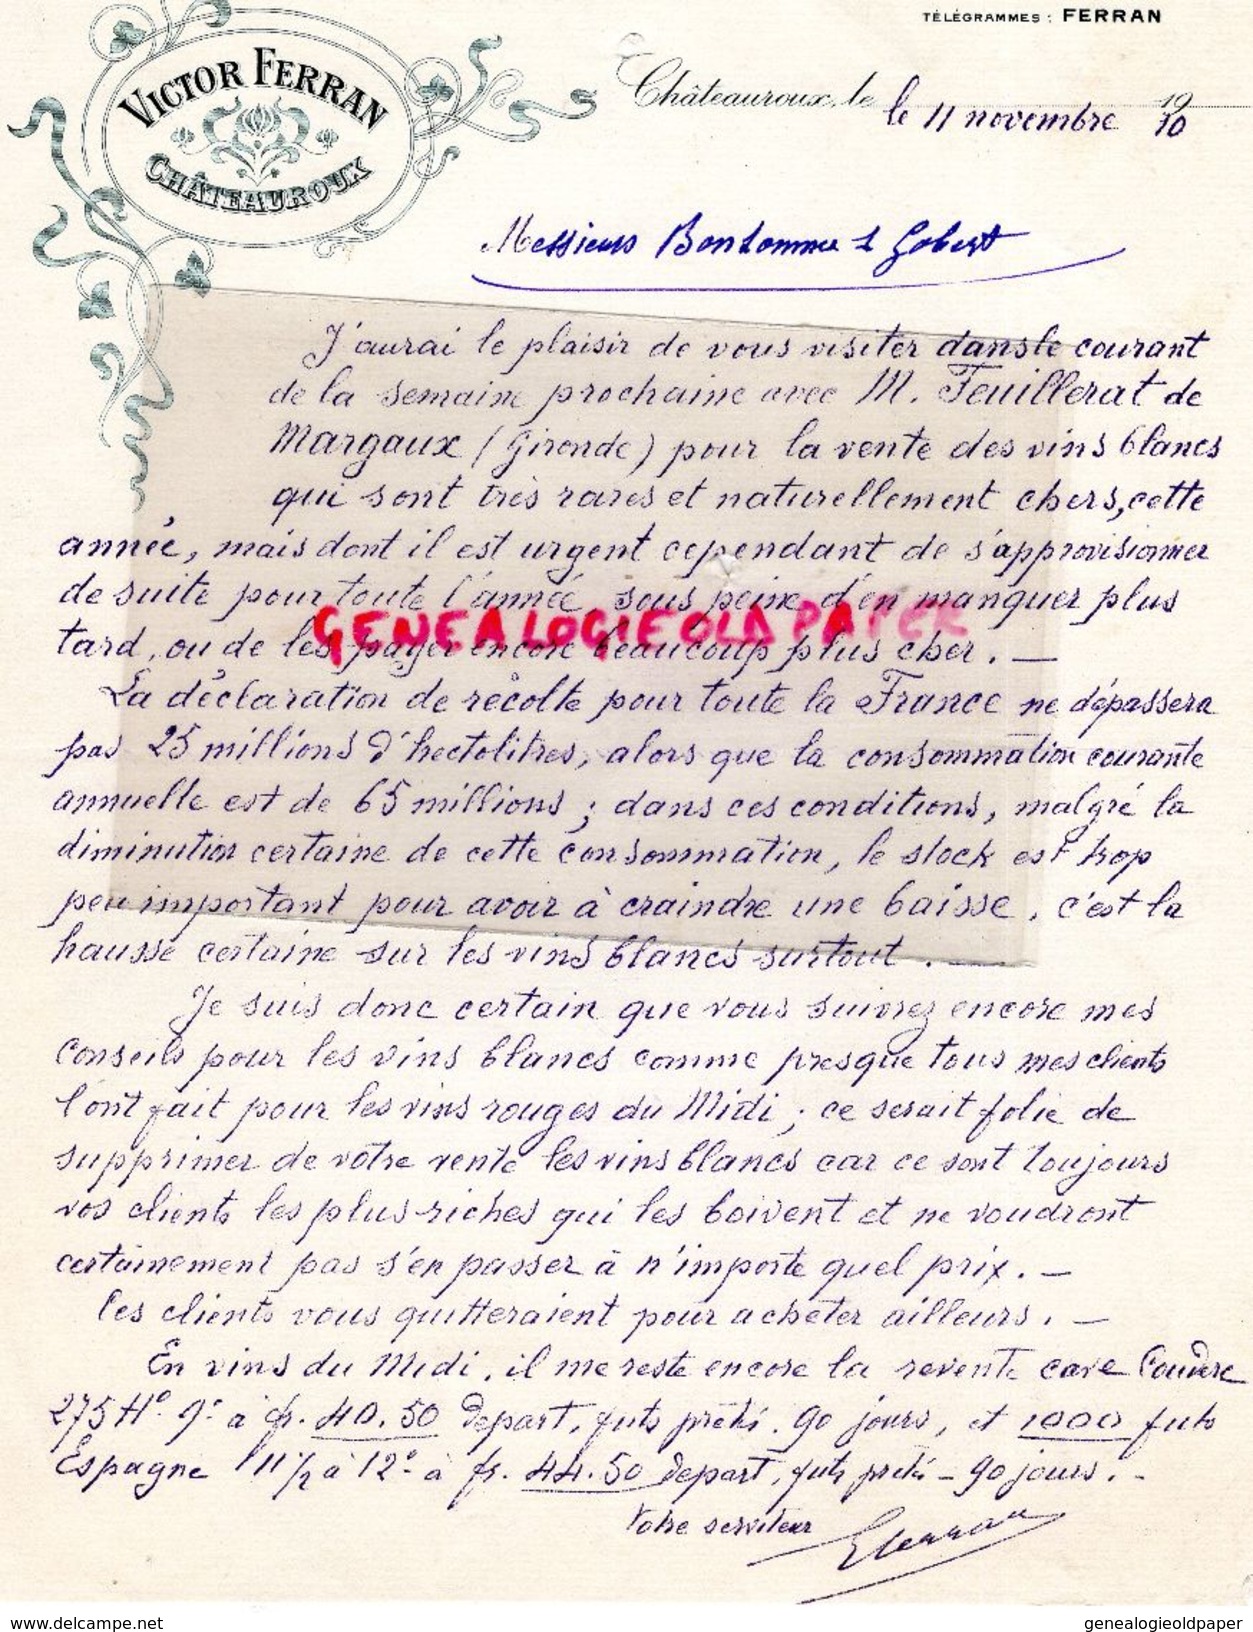 TÉLÉGRAMMES : FERRAN
VICTOR FERRAN
CHÂTEAUROUX
Châteauroux, le le 11 novembre 1910
Messieurs Bonhomme & Gobert
J'aurai le plaisir de vous visiter dans le courant
de la semaine prochaine avec M. Feuillerat de
Margaux (Gironde) pour la vente des vins blancs
qui sont très rares et naturellement chers, cette
année, mais dont il est urgent cependant de s'approvisionner
de suite pour toute l'année, sous peine d'en manquer plus
GENEALOGIEOLDPAPER
tard, ou de les payer encore beaucoup plus cher. —
La déclaration de récolte pour toute la France ne dépassera
pas 25 millions d'hectolitres, alors que la consommation courante
annuelle est de 65 millions ; dans ces conditions, malgré la
diminution certaine de cette consommation, le stock est trop
peu important pour avoir à craindre une baisse, c'est la
hausse certaine sur les vins blancs surtout. —
Je suis donc certain que vous suivrez encore mes
conseils pour les vins blancs comme presque tous mes clients
l'ont fait pour les vins rouges du Midi ; ce serait folie de
supprimer de votre vente les vins blancs car ce sont toujours
vos clients les plus riches qui les boivent et ne voudront
certainement pas s'en passer à n'importe quel prix. —
Ces clients vous quitteraient pour acheter ailleurs. —
En vins du Midi, il me reste encore la revente cave Coudere
275 Ho 9° à fr. 40.50 depart, futs prêtés. 90 jours, et 1000 futs
Espagne 11 1/2 à 12° à fr. 44.50 depart, futs prêtés — 90 jours. —
Votre serviteur
VFerran
www.delcampe.net
genealogieoldpaper